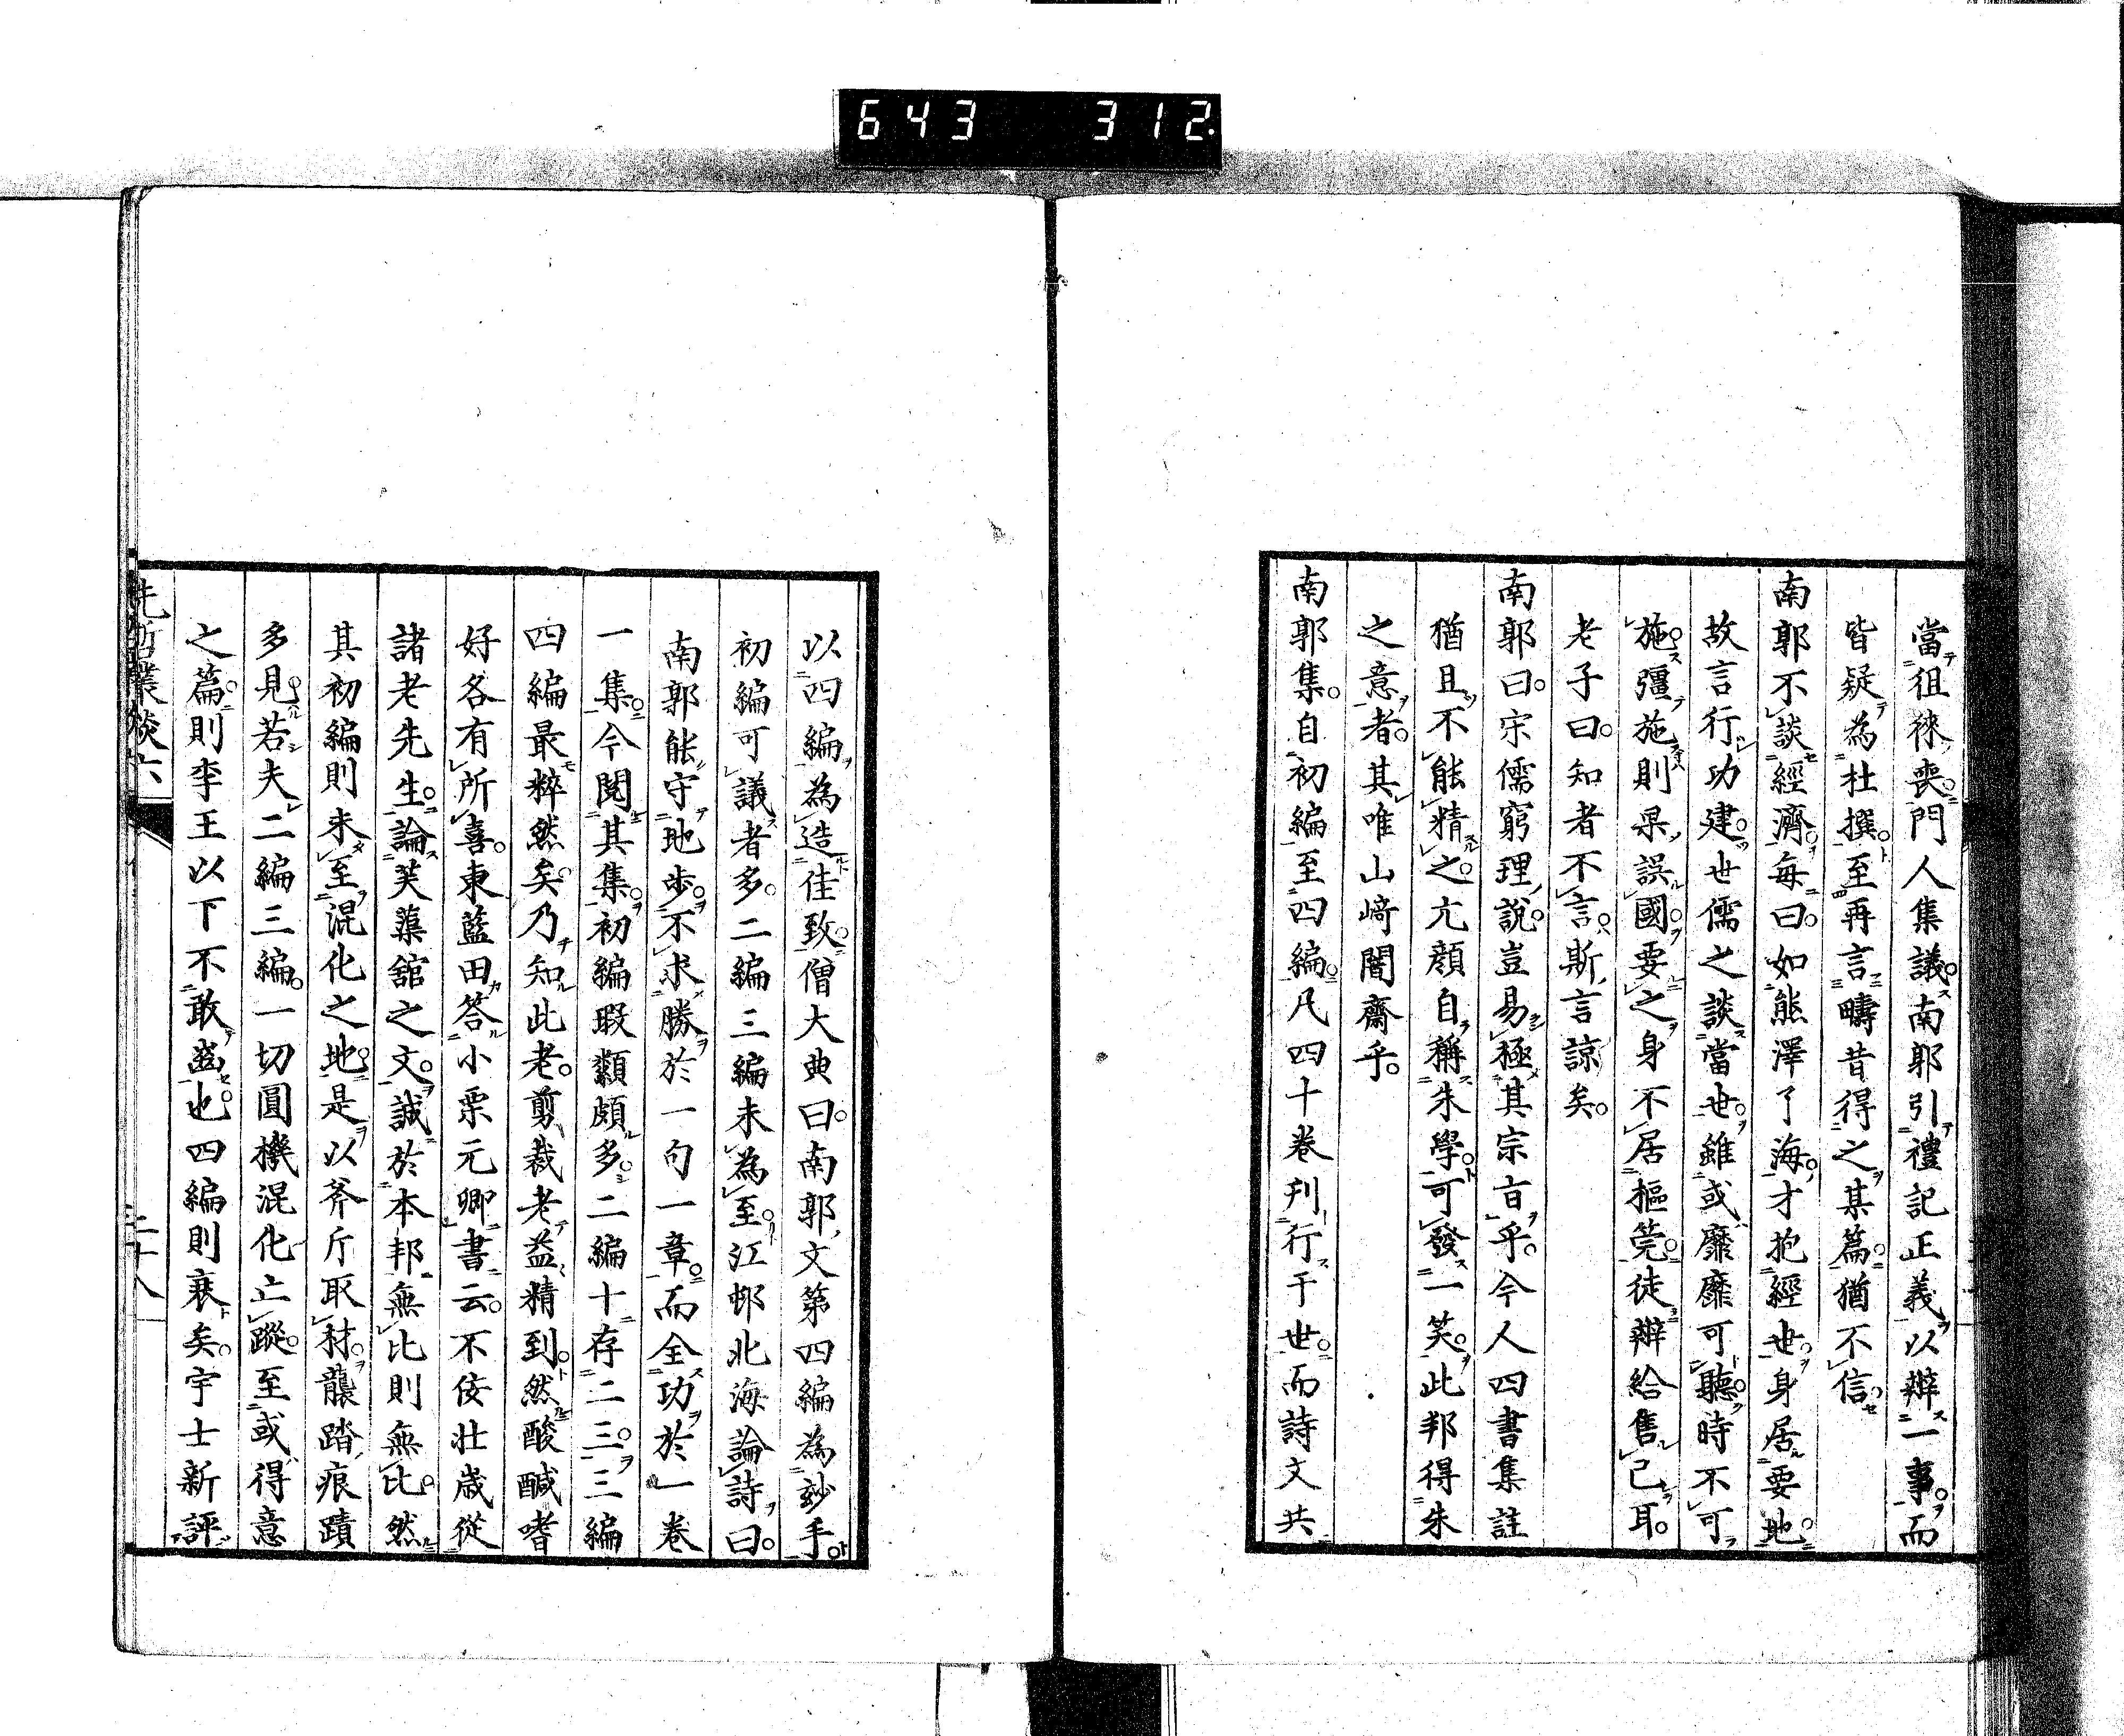 643 312
當徂徠喪門人集議南郭引禮記正義以辯一事而
皆疑為杜撰至再言疇昔得之某篇猶不信
南郭不談經濟每曰如熊澤了海才抱經世身居要地
故言行功建世儒之談當世雖或靡靡可聽時不可
施彊施則果誤國要之身不居樞筦徒辯給售己耳
老子曰知者不言斯言諒矣
南郭曰宋儒窮理說豈易極其宗㫖乎今人四書集註
猶且不能精之亢顏自稱朱學可發一笑此邦得朱
之意者其唯山﨑闇齋乎
南郭集自初編至四編凡四十卷刋行于世而詩文共
以四編為造佳致僧大典曰南郭文第四編為玅手
初編可議者多二編三編未為至江邨北海論詩曰
南郭能守地步不求勝於一句一章而全功於一卷
一集今閱其集初編瑕纇頗多二編十存二三三編
四編最粹然矣乃知此老剪裁老益精到然酸醎嗜
好各有所喜東藍田答小栗元卿書云不佞壯歲從
諸老先生論芙蕖舘之文誠於本邦無比則無比然
其初編則未至混化之地是以斧斤取材襲踏痕蹟
多見若夫二編三編一切圓機混化亡蹤至或得意
之篇則李王以下不敢啚也四編則衰矣宇士新評
先哲叢談六
二十八